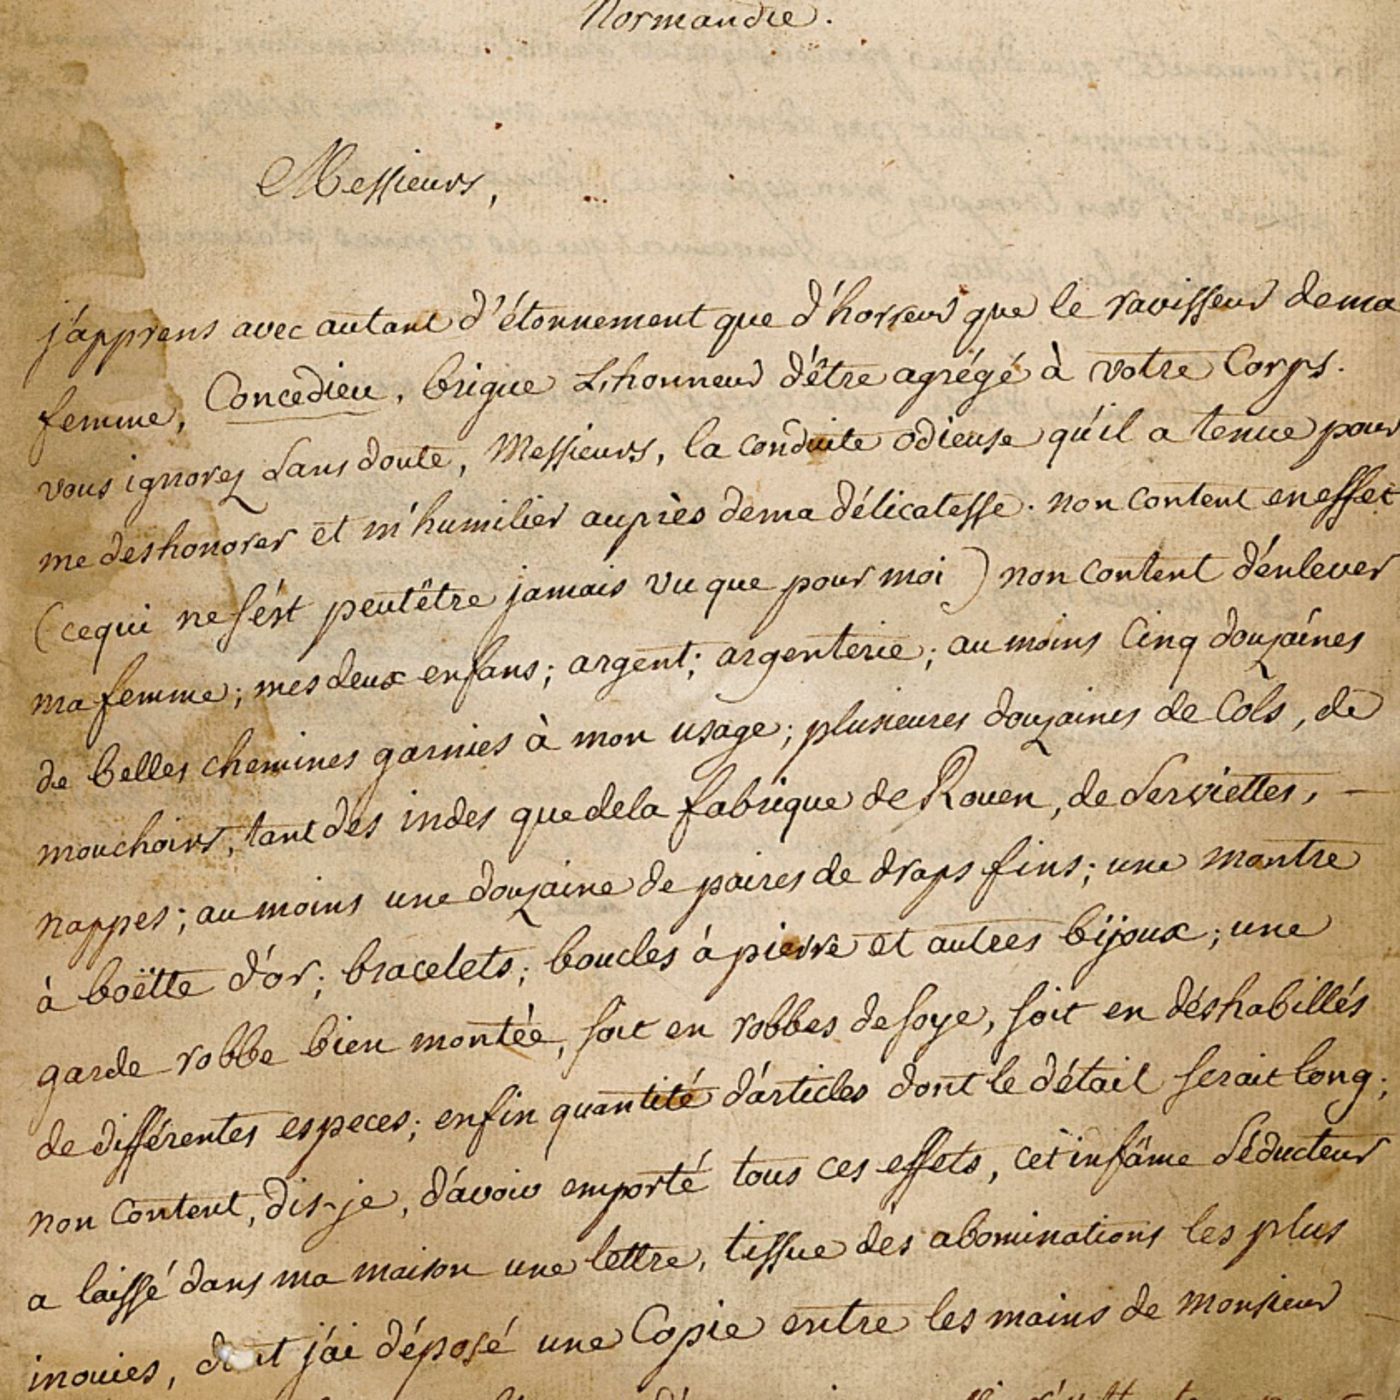 Normandie.
Messieurs,
j'apprens avec autant d'étonnement que d'horreur que le ravisseur de ma
femme, Concedieu, brigue L'honneur d'être agrégé à votre Corps.
vous ignorez sans doute, Messieurs, la conduite odieuse qu'il a tenue pour
me deshonorer et m'humilier auprès de ma délicatesse. non content en effet
(ce qui ne s'ést peutêtre jamais vu que pour moi) non content d'énlever
ma femme; mes deux enfans; argent; argenterie; au moins Cinq douzaines
de belles chemines garnies à mon usage; plusieures douzaines de Cols, de
mouchoirs, tant des indes que de la fabrique de Rouen, de serviettes, —
nappes; au moins une douzaine de paires de draps fins; une montre
à boëtte d'or; bracelets; boucles à pierre et autres bijoux; une
garde robbe bien montée, soit en robbes de soye, soit en déshabillés
de différentes especes; enfin quantité d'articles dont le détail serait long;
non Content, dis-je, d'avoir emporté tous ces effets, cet infâme séducteur
a laissé dans ma maison une lettre, tissue des abominations les plus
inouies, dont j'ai déposé une Copie entre les mains de Monsieur